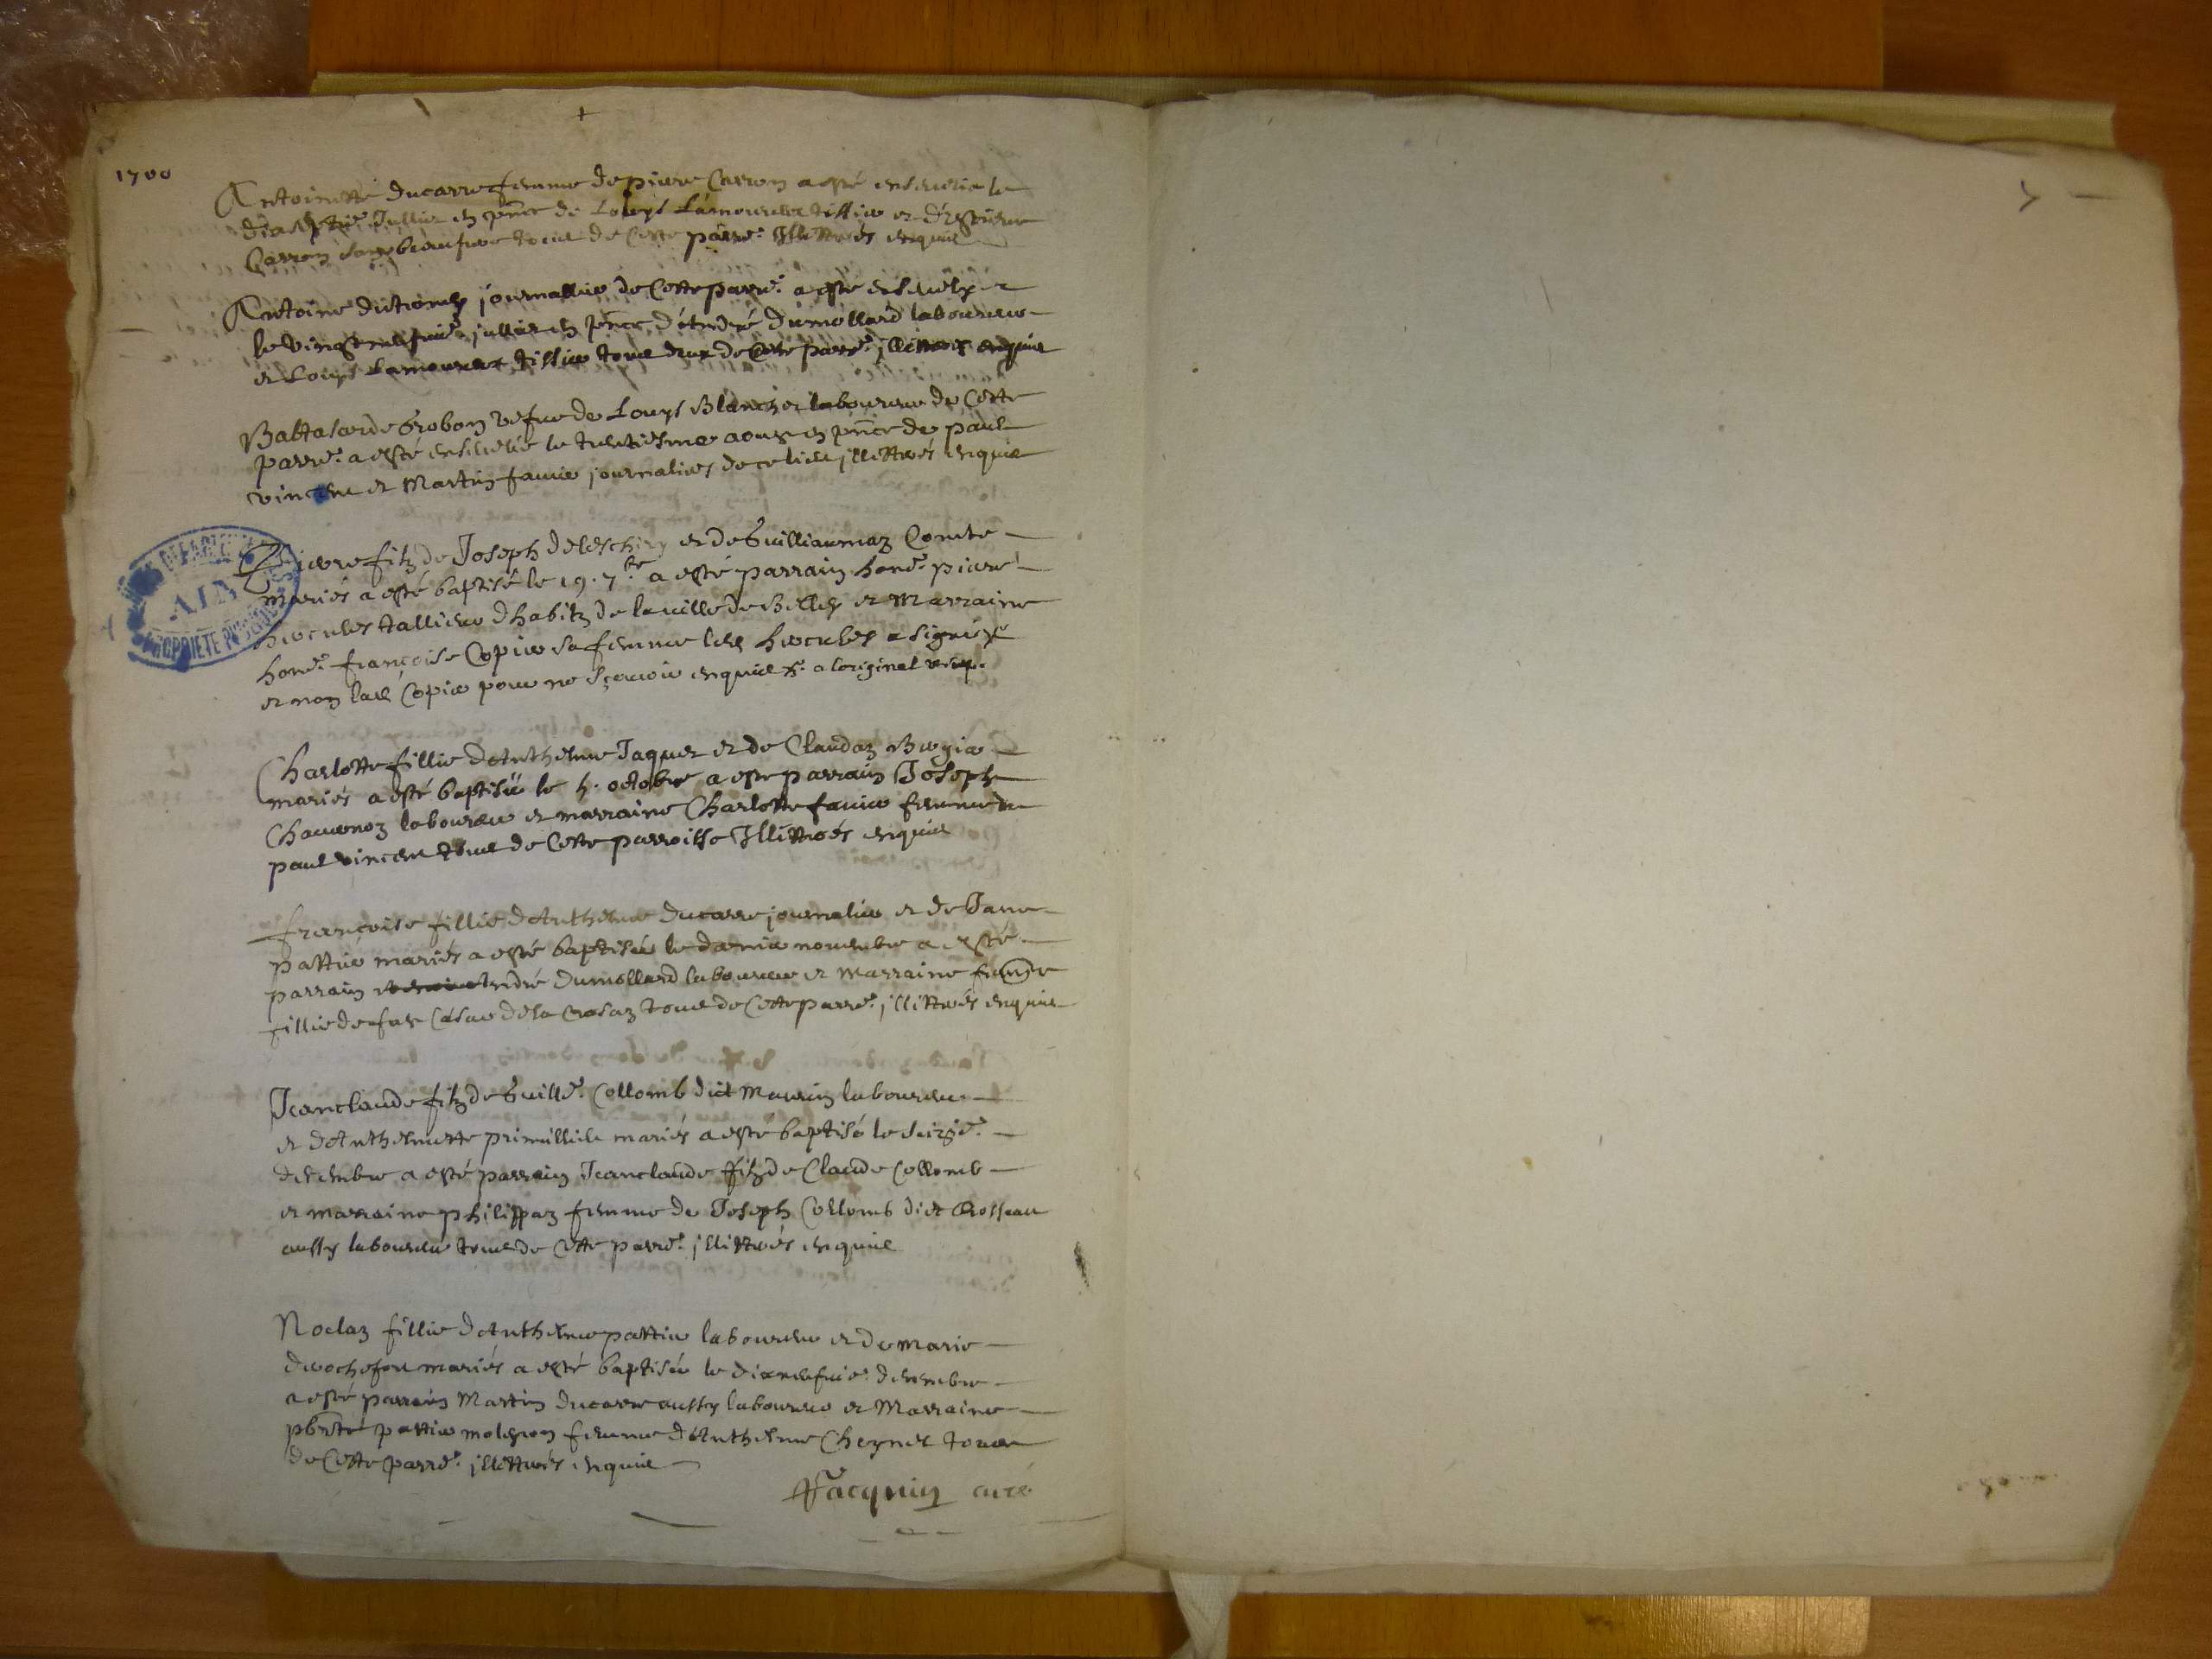 1700
Antoinette Ducarre femme de pierre Carron a esté ensevelie le
Juillet en pñce de Louys Lamoureux tissier et d'Estienne
Carron son beaufrere tous de Cette parre. Illittrés enquis
Antoine journallier de Cette parre. a esté ensevely
le vingt neufvie. juillet en pñce d'André Dumollard laboureur
et Louys Lamoureux tissier tous deux de Cette parre. illittrés enquis
Baltasarde Grobon vefve de Louys Blanchet laboureur de Cette
parre. a esté ensevelie le trentiesme aoust en pñce de paul
vincent et Martin favier journaliers de ce lieu illittrés enquis
Pierre fils de Joseph et de Guilliaumaz Comte
mariés a esté baptisé le 19. 7bre a esté parrain hone. pierre
hercules tallieur d'habits de la ville de Belley et Marraine
hone. françoise Copier sa femme led hercules a signé
et non lad Copier pour ne sçavoir enquise a l'original
Charlotte fillie d'Anthelme Jaquet et de Claudaz Bergier
mariés a esté baptisée le 5. octobre a esté parrain Joseph
Chavenoz laboureur et marraine Charlotte favier femme de
paul vincent tous de Cette parroisse Illittrés enquis
françoise fillie d'Anthelme Ducarre journalier et de Jane
pattier mariés a esté baptisée le dernier novembre a esté
parrain André Dumollard laboureur et marraine
fillie de feu Cesar de la Crosaz tous de Cette parre. illittrés enquis
Jeanclaude fils de Guille. Collomb dict Maurin laboureur
et d'Anthelmette primillieu mariés a esté baptisé le seizie.
decembre a esté parrain Jeanclaude fils de Claude Collomb
et marraine philippaz femme de Joseph Collomb dict Rosseau
aussy laboureur tous de Cette parre. illittrés enquis
Noelaz fillie d'Anthelme pattier laboureur et de marie
derochefort mariés a esté baptisée le dixneufvie. decembre
a esté parrain Martin Ducarre aussy laboureur et Marraine
pattier molliron femme d'Anthelme Cheynet tous
de Cette parre. illittrés enquis
Jacquin curé
AIN
PROPRIETE PUBLIQUE